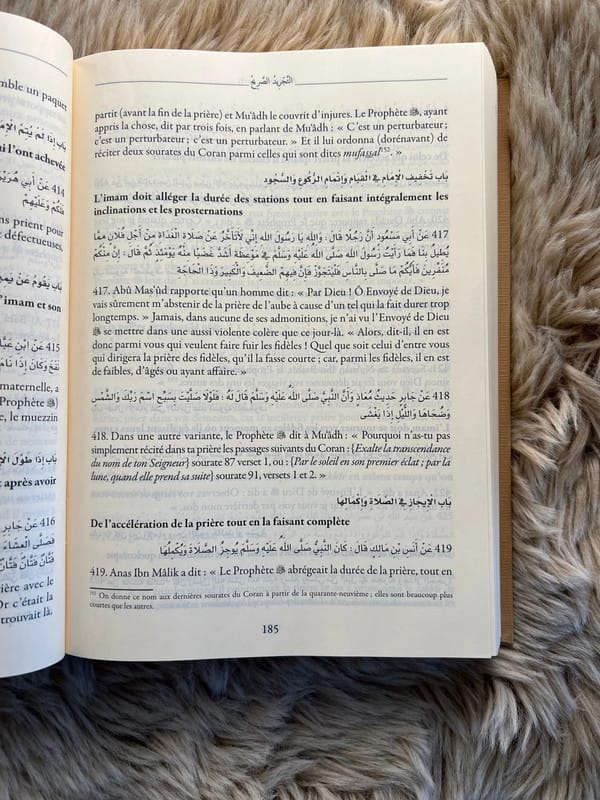 mble un paquet
باب إذا لم يتم الإم
ui l'ont achevée
414 عن أبي هرير
منكم وعليهم
ns prient pour
défectueuses,
باب يقوم عن يمي
'imam et son
415 عن ابن عبا
نفخ وكان إذا نام
maternelle, a
Prophète ﷺ)
e, le muezzin
باب إذا طول الإ
après avoir
416 عن جابر
فصلى العشاء
فتان فتان فتا
rière avec le
Or c'était la
trouvait là,
التَّجْرِيدُ الصَّرِيحُ
partit (avant la fin de la prière) et Mu'âdh le couvrit d'injures. Le Prophète ﷺ, ayant
appris la chose, dit par trois fois, en parlant de Mu'âdh : « C'est un perturbateur ;
c'est un perturbateur ; c'est un perturbateur. » Et il lui ordonna (dorénavant) de
réciter deux sourates du Coran parmi celles qui sont dites mufassal¹⁵². »
باب تخفيف الإمام في القيام وإتمام الركوع والسجود
L'imam doit alléger la durée des stations tout en faisant intégralement les
inclinations et les prosternations
417 عَنْ أَبِي مَسْعُودٍ أَنَّ رَجُلًا قَالَ: وَاللَّهِ يَا رَسُولَ اللَّهِ إِنِّي لَأَتَأَخَّرُ عَنْ صَلَاةِ الْغَدَاةِ مِنْ أَجْلِ فُلَانٍ مِمَّا
يُطِيلُ بِنَا فَمَا رَأَيْتُ رَسُولَ اللَّهِ صَلَّى اللَّهُ عَلَيْهِ وَسَلَّمَ فِي مَوْعِظَةٍ أَشَدَّ غَضَبًا مِنْهُ يَوْمَئِذٍ ثُمَّ قَالَ: إِنَّ مِنْكُمْ
مُنَفِّرِينَ فَأَيُّكُمْ مَا صَلَّى بِالنَّاسِ فَلْيَتَجَوَّزْ فَإِنَّ فِيهِمُ الضَّعِيفَ وَالْكَبِيرَ وَذَا الْحَاجَةِ
417. Abû Mas'ûd rapporte qu'un homme dit : « Par Dieu ! Ô Envoyé de Dieu, je
vais sûrement m'abstenir de la prière de l'aube à cause d'un tel qui la fait durer trop
longtemps. » Jamais, dans aucune de ses admonitions, je n'ai vu l'Envoyé de Dieu
ﷺ se mettre dans une aussi violente colère que ce jour-là. « Alors, dit-il, il en est
donc parmi vous qui veulent faire fuir les fidèles ! Quel que soit celui d'entre vous
qui dirigera la prière des fidèles, qu'il la fasse courte ; car, parmi les fidèles, il en est
de faibles, d'âgés ou ayant affaire. »
418 عَنْ جَابِرٍ حَدِيثُ مُعَاذٍ وَأَنَّ النَّبِيَّ صَلَّى اللَّهُ عَلَيْهِ وَسَلَّمَ قَالَ لَهُ: فَلَوْلَا صَلَّيْتَ بِسَبِّحِ اسْمَ رَبِّكَ وَالشَّمْسِ
وَضُحَاهَا وَاللَّيْلِ إِذَا يَغْشَى
418. Dans une autre variante, le Prophète ﷺ dit à Mu'âdh : « Pourquoi n'as-tu pas
simplement récité dans ta prière les passages suivants du Coran : {Exalte la transcendance
du nom de ton Seigneur} sourate 87 verset 1, ou : {Par le soleil en son premier éclat ; par la
lune, quand elle prend sa suite} sourate 91, versets 1 et 2. »
باب الإيجاز في الصلاة وإكمالها
De l'accélération de la prière tout en la faisant complète
419 عَنْ أَنَسِ بْنِ مَالِكٍ قَالَ: كَانَ النَّبِيُّ صَلَّى اللَّهُ عَلَيْهِ وَسَلَّمَ يُوجِزُ الصَّلَاةَ وَيُكْمِلُهَا
419. Anas Ibn Mâlik a dit : « Le Prophète ﷺ abrégeait la durée de la prière, tout en
¹⁵² On donne ce nom aux dernières sourates du Coran à partir de la quarante-neuvième ; elles sont beaucoup plus
courtes que les autres.
185